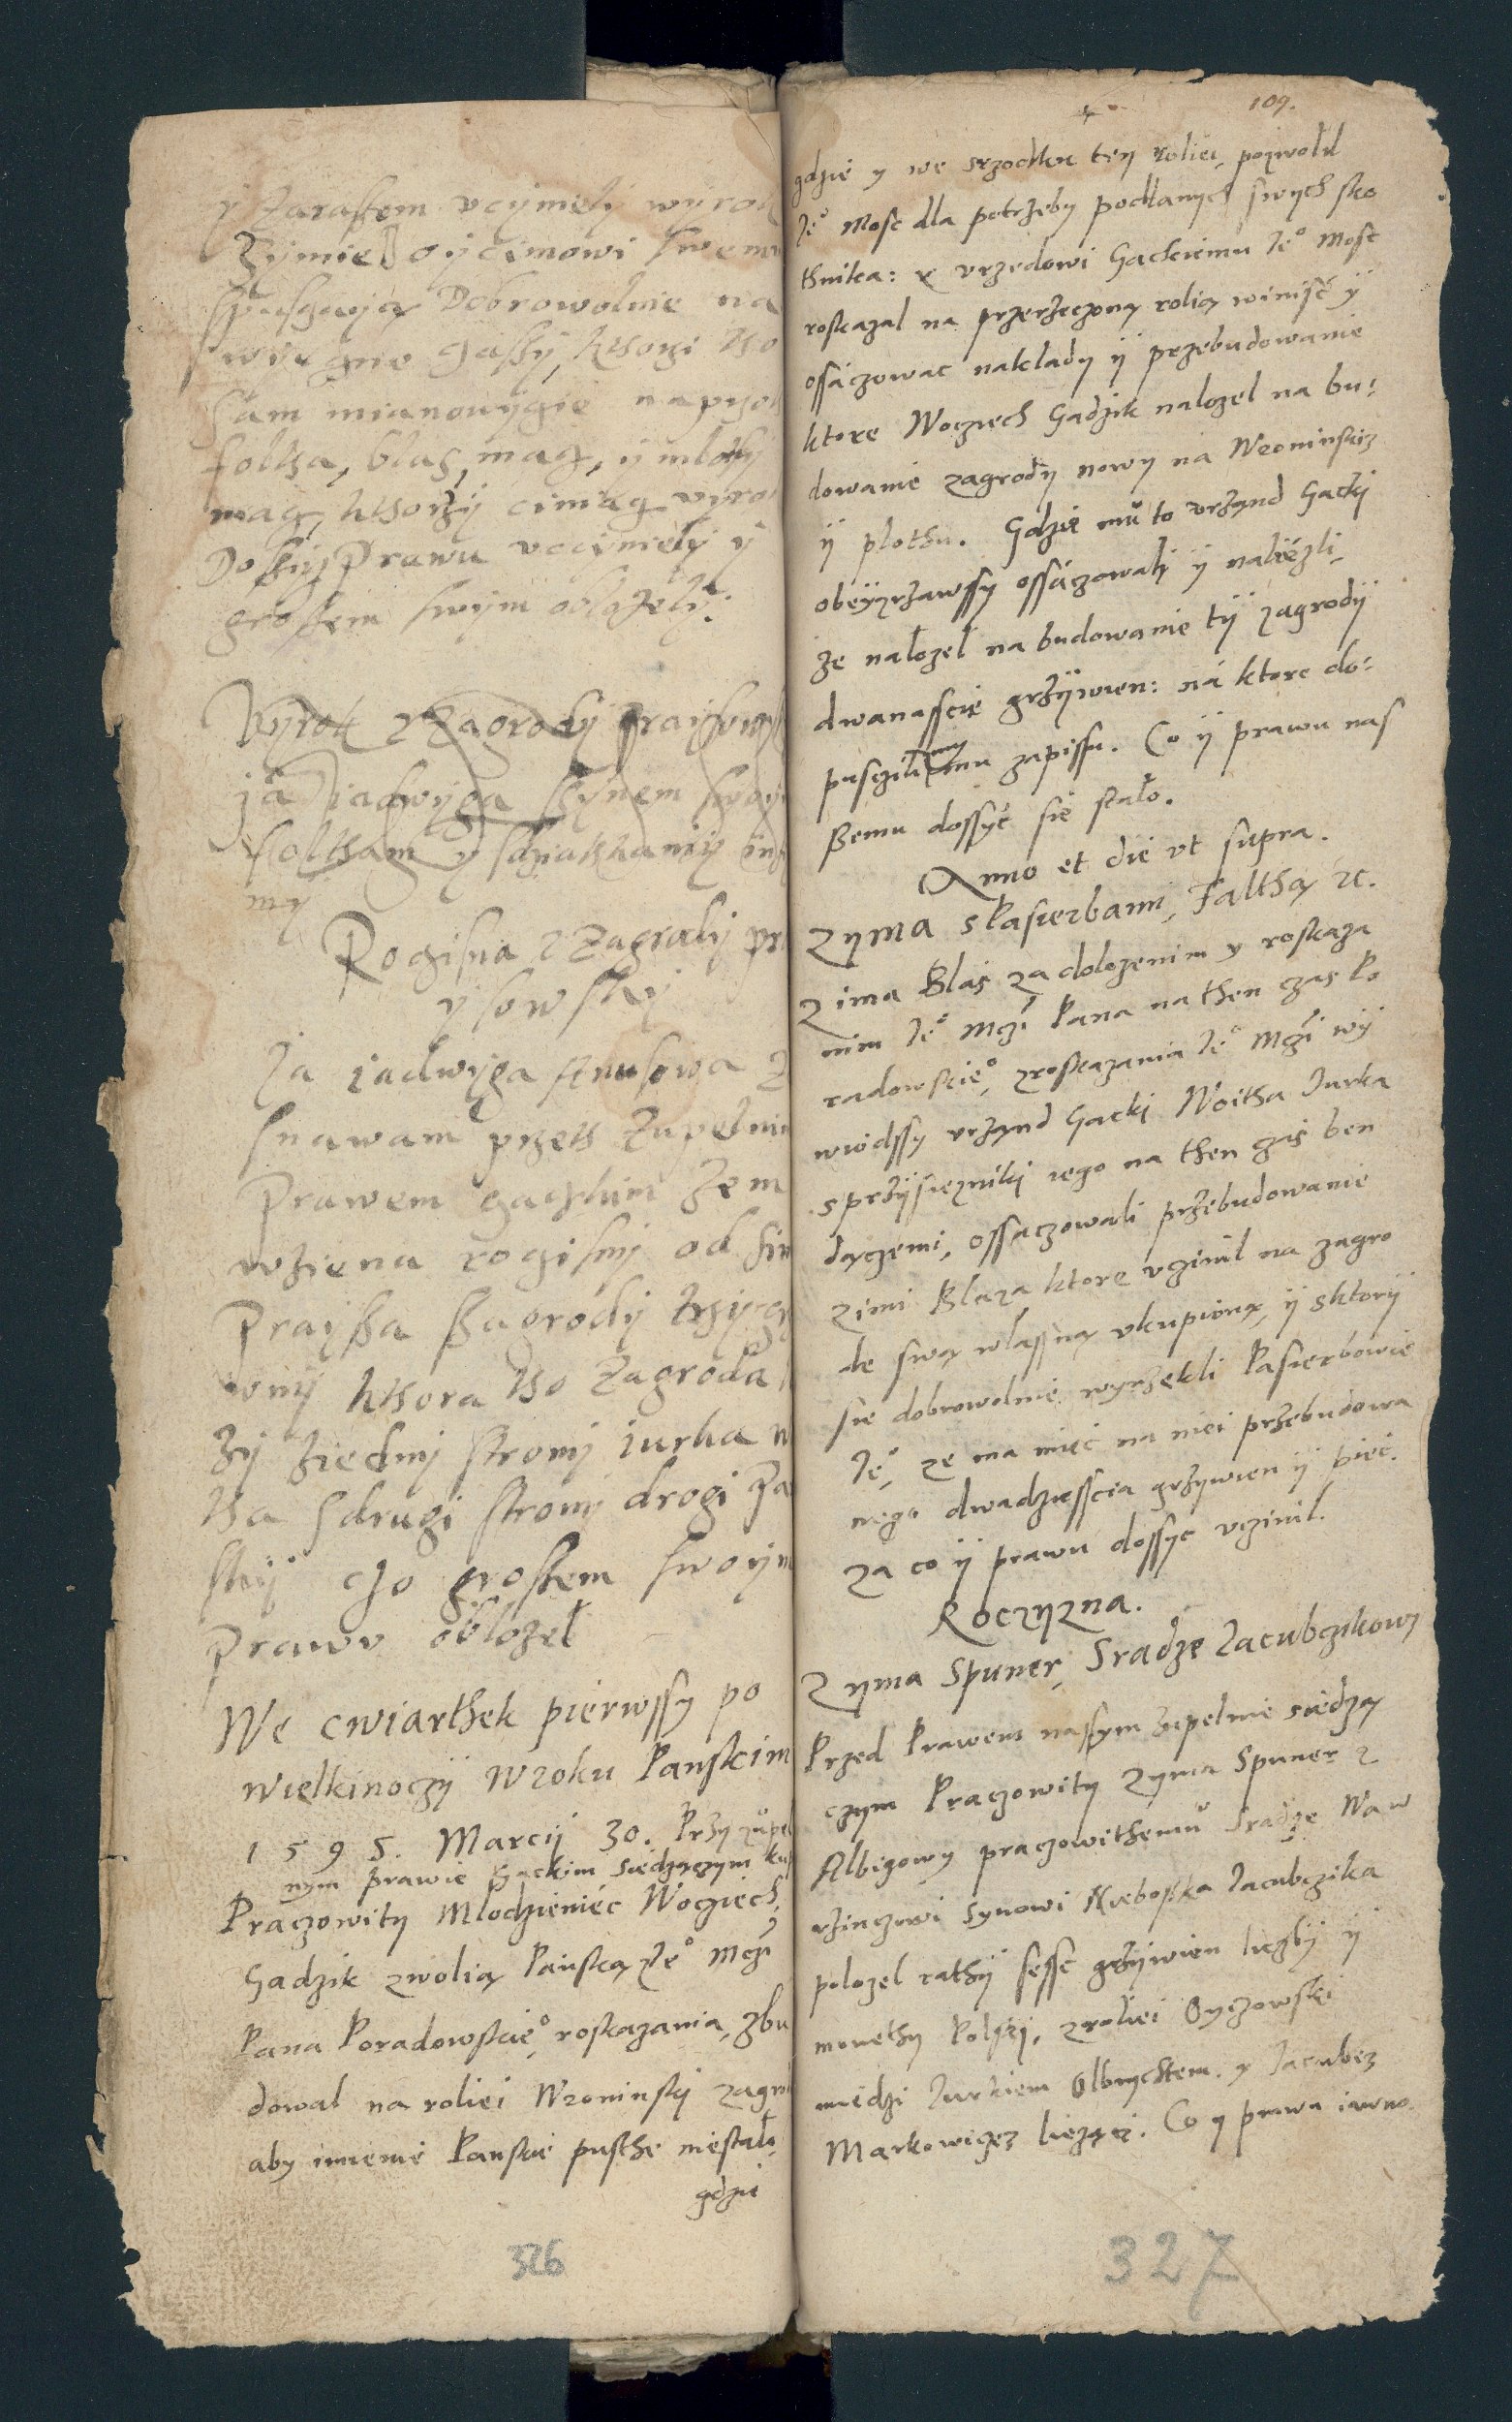 y Zarassem vcijmiely wyrok
Zijmie oycimowi swemu
spusczają Dobrowolnie na
wiecne czassy, kthori tho
sam mianowycie napzo
foltha, blas, mag, y mlothy
mag, kthorzy cimag vyro
Dossyc Prawu vcijniely y
grossem swym oblozely.
Wyrok z Zagrody Praisowsk
ja iadwyga synem swoy
foltham y
my
Rogisna z Zagrody pr
ysowsky
Ja iadwyga smusowa z
snawam przeth zupelnim
Prawem gaczkim zem
wziena rogisny od sim
Prayssa Zagrody trzy gr
wny kthora tho zagroda
zy ziedny strony iurka w
tha sdrugi strony drogi Za
sky czo grossem swoym
Prawu oblozel
We cwiarthek pierwssy po
Wielkinoczy Wroku Panskim
1595. Marcij 30. Przy zupel
nym Prawie Gackim siedzączym kup
Praczowity Mlodzieniec Wogiech
Gadzik zwolią Panską Je° Mczi
Pana Poradowskie° roskazania, zbu
dowal na roliei Wroninsky zagro
aby imienie Panskie pusthe niestało,
gdzie
326
109.
gdzie y we srzodku tey roliei, pozwolil
Je° Mosc dla potrzeby poddanych swych sko
thnika: x vrzedowi Gackiemu Je° Mosc
roskazal na przerzeczoną rolią winiść y
ossaczowac naklady ij przebudowanie
ktore Wogiech Gadzik nalozel na bu:
dowanie zagrody nowy na Wroninskiz
ij plothu. Gdzie mu to vrżąnd Gacki
obeyzrżawssy ossaczowali ij nalieźli,
że nałozeł na budowanie tij zagrodij
dwanasscie grzijwien: ná ktore do:
pusczili my mu zapissu. Co ij prawu nas
ssemu dossyć sie stało.
Anno et die vt supra.
Zyma s Pasierbami, Falthą etc.
Zima Blas za dolozenim y roskaza
nim Je° Mczi Pana na then czas Po
radowskie°, zroskazania Je° Mczi wy
wiodssy vrżąnd Gacki Woitha Jurka
s prżijsieznikj iego na then czas ben
dączemi, ossaczowali prżebudowanie
Zimi Blaza ktore vczinil na zagro
de swą własną vkupioną, ij sktorij
sie dobrowolnie wyrzekli Pasierbowie
Je°, ze ma mięc na niei prżebudowa
niego dwadziesscia grzywien ij pieć.
Za co ij prawu dossyc vczinil.
Roczyzna.
Zyma Spuner, Sradze Jacubczikowy
Przed Prawem nassym zupelnie siedzą
czym Praczowity Zyma Spuner z
Albigowy praczowithemu Sradze Waw
rzinczowi Synowi Nieboska Jacubczika
polozel rathij sesse grzijwien liczbij ij
monethy Polski, zroliei Oyczowski
miedzi Jurkiem Olbrychtem. y Jacubez
Markowiczez lieząci. Co y prawu iawno.
327